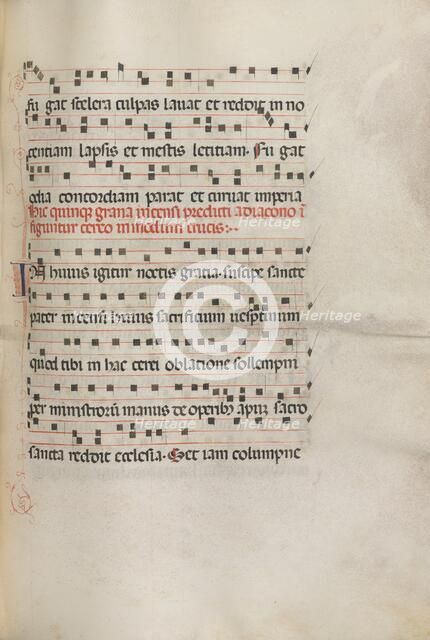 fu gat scelera culpas lauat et reddit in no
centiam lapsis et mestis letitiam. Fu gat
odia concordiam parat et curuat imperia
Hic quinqꝫ grana incensi predicti a diacono ĩ
figuntur cereo in modum crucis:
In huius igitur noctis gratia suscipe sancte
pater incensi huius sacrificium uespertinum
quod tibi in hac cerei oblatione sollempni
per ministrorũ manus de operibꝫ apum sacro
sancta reddit ecclesia. Set iam columpne
Heritage
heritage
Heritage
Heritage
heritage
Heritage